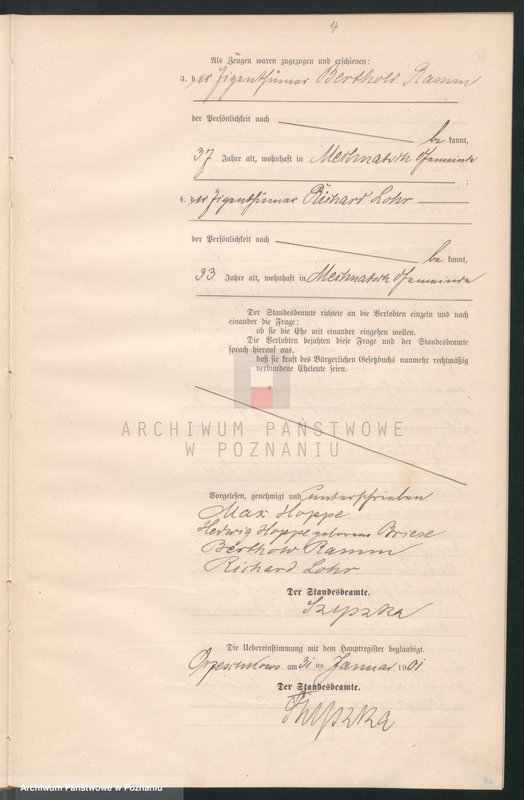 17
Als Zeugen waren zugezogen und erschienen:
3. der Eigenthümer Berthold Ramm
der Persönlichkeit nach
be kannt,
37 Jahre alt, wohnhaft in Meihnatsch Gemeinde
;
4. der Eigenthümer Richard Lohr
der Persönlichkeit nach
be kannt,
33 Jahre alt, wohnhaft in Meihnatsch Gemeinde
Der Standesbeamte richtete an die Verlobten einzeln und nach
einander die Frage:
ob sie die Ehe mit einander eingehen wollen.
Die Verlobten bejahten diese Frage und der Standesbeamte
sprach hierauf aus,
daß sie kraft des Bürgerlichen Gesetzbuchs nunmehr rechtmäßig
verbundene Eheleute seien.
ARCHIWUM PAŃSTWOWE
W POZNANIU
Vorgelesen, genehmigt und unterschrieben
Max Hoppe
Hedwig Hoppe geborene Briese
Berthold Ramm
Richard Lohr
Der Standesbeamte.
Szyszka
Die Uebereinstimmung mit dem Hauptregister beglaubigt.
am 31 ten Januar 1901
Der Standesbeamte.
Szyszka
Archiwum Państwowe w Poznaniu